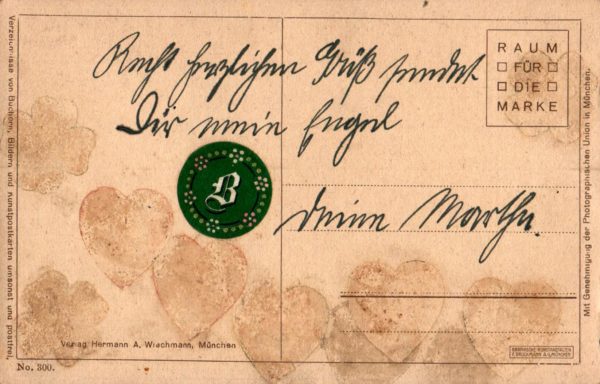 Recht herzlichen Gruß sendet
Dir mein Engel
Deine Martha.
RAUM
FÜR
DIE
MARKE
B
Verzeichnisse von Büchern, Bildern und Kunstpostkarten umsonst und postfrei.
Mit Genehmigung der Photographischen Union in München.
Verlag Hermann A. Wiechmann, München
No. 300.